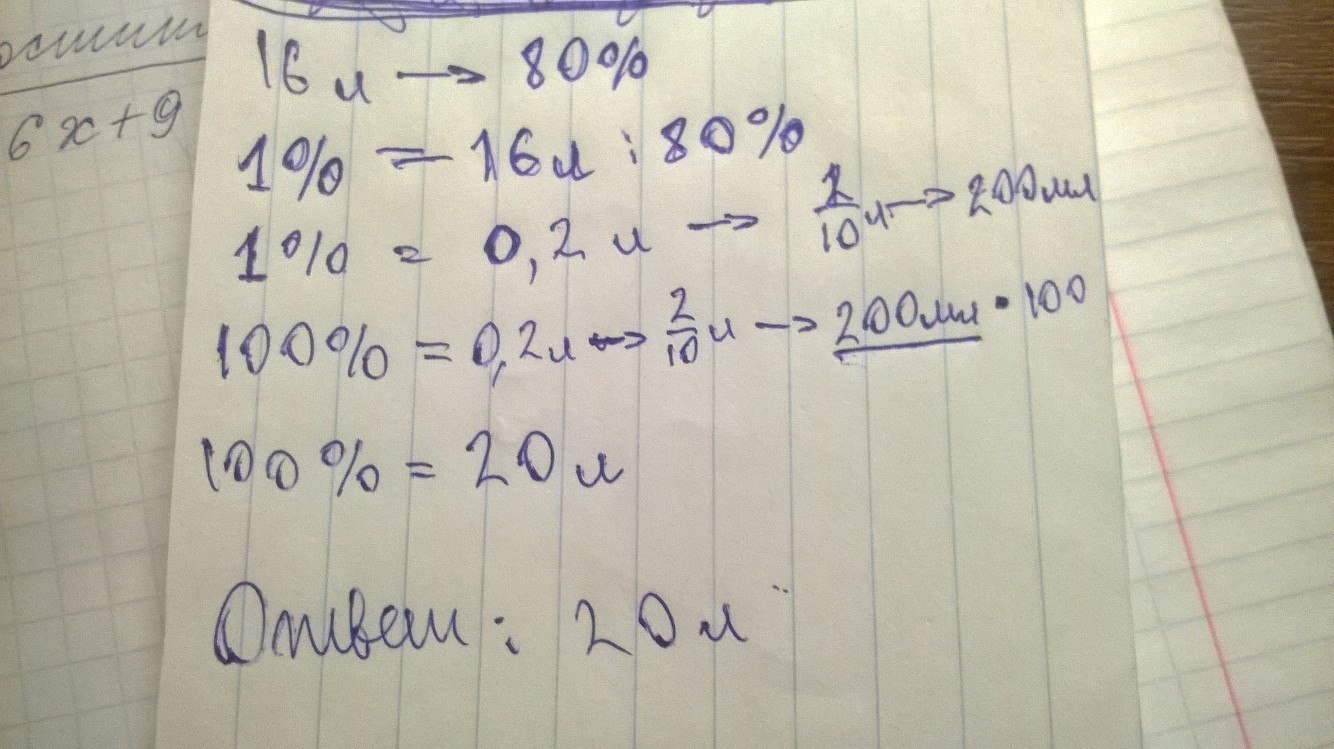 16 л → 80%
1% = 16 л : 80%
1% = 0,2 л → 2/10 л → 200мл
100% = 0,2 л → 2/10 л → 200мл • 100
100% = 20 л
Ответ: 20 л
6x+9